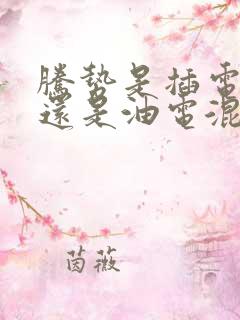 騰勢是插電
還是油電混
茵薇